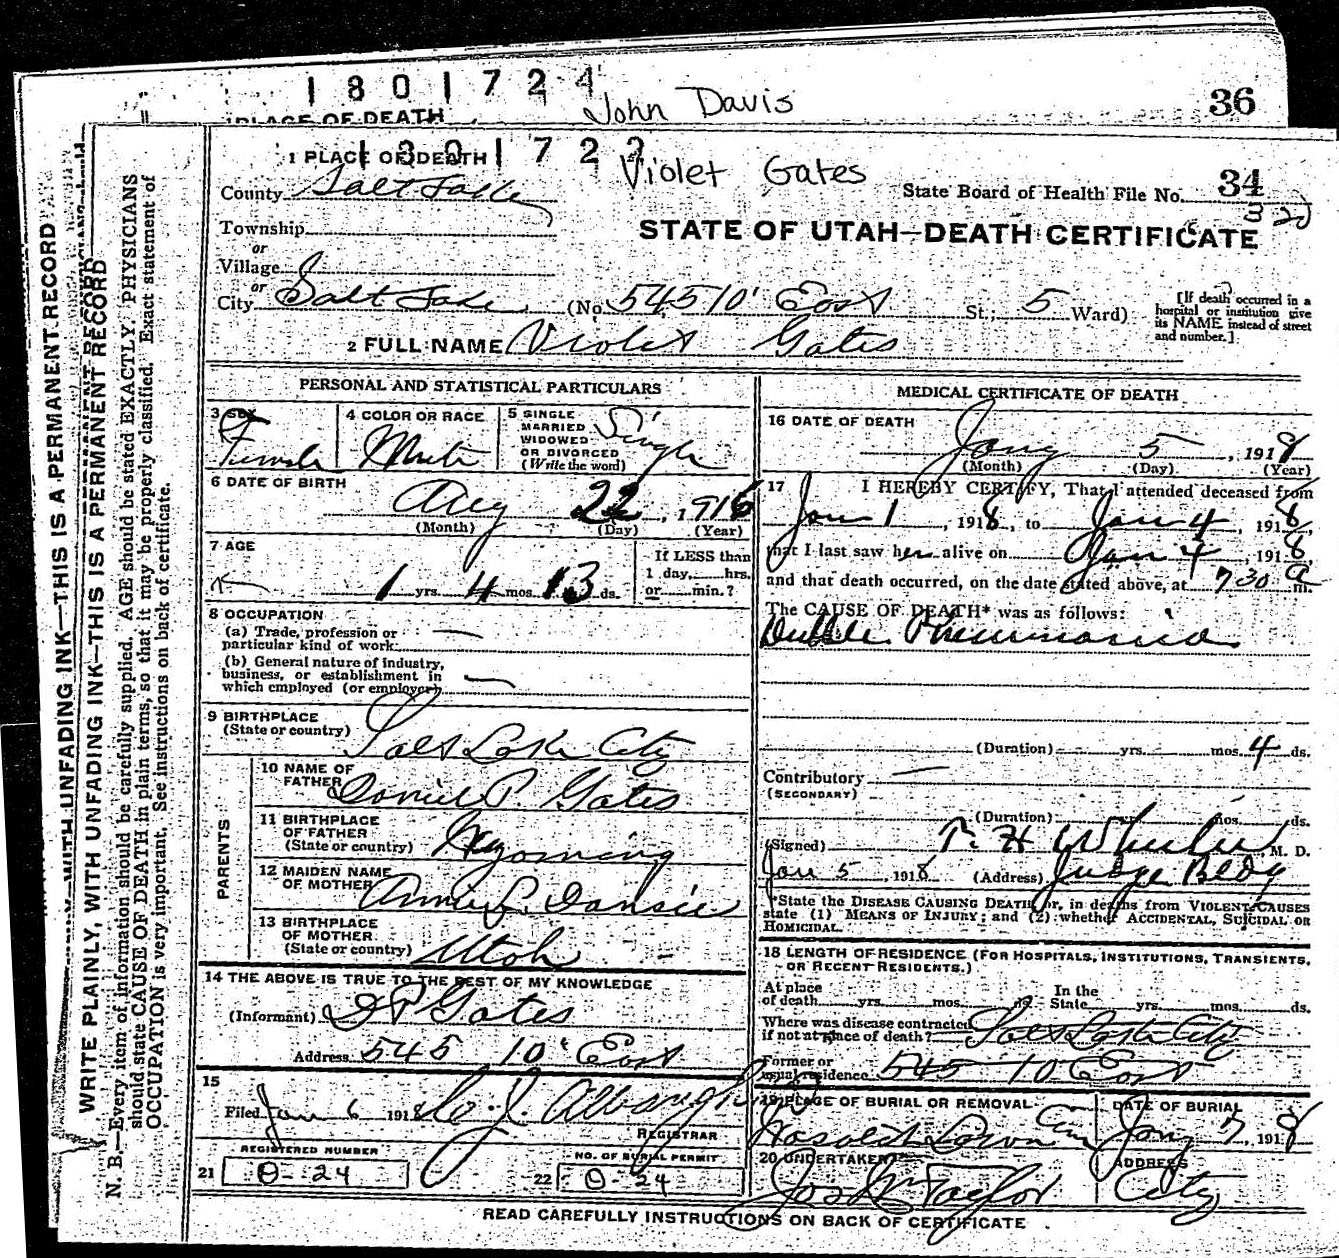 1801724
PLACE OF DEATH
John Davis
36
1 PLACE OF DEATH
1801722
Violet Gates
County Salt Lake
State Board of Health File No. 34
Township
STATE OF UTAH—DEATH CERTIFICATE
or
Village
or
City Salt Lake (No. 545 10' East St.; 5 Ward)
[If death occurred in a
hospital or institution give
its NAME instead of street
and number.]
2 FULL NAME Violet Gates
PERSONAL AND STATISTICAL PARTICULARS
3 SEX
Female
4 COLOR OR RACE
White
5 SINGLE
MARRIED
WIDOWED
OR DIVORCED
(Write the word)
Single
6 DATE OF BIRTH
Aug 22, 1916
(Month) (Day) (Year)
7 AGE
1 yrs. 4 mos. 13 ds.
If LESS than
1 day, hrs.
or min.?
8 OCCUPATION
(a) Trade, profession or
particular kind of work
(b) General nature of industry,
business, or establishment in
which employed (or employer)
9 BIRTHPLACE
(State or country) Salt Lake City
PARENTS
10 NAME OF
FATHER Daniel P. Gates
11 BIRTHPLACE
OF FATHER
(State or country) Wyoming
12 MAIDEN NAME
OF MOTHER Annie L. Dansie
13 BIRTHPLACE
OF MOTHER
(State or country) Utah
14 THE ABOVE IS TRUE TO THE BEST OF MY KNOWLEDGE
(Informant) D P Gates
Address 545 10' East
15
Filed Jan 6 1918
REGISTRAR
REGISTERED NUMBER
21 O-24
NO. OF BURIAL PERMIT
22 O-24
MEDICAL CERTIFICATE OF DEATH
16 DATE OF DEATH
Jany 5, 1918
(Month) (Day) (Year)
17 I HEREBY CERTIFY, That I attended deceased from
Jan 1, 1918, to Jan 4, 1918
that I last saw her alive on Jan 4, 1918
and that death occurred, on the date stated above, at 7 30 a m.
The CAUSE OF DEATH* was as follows:
Duble Pneumonia
(Duration) yrs. mos. 4 ds.
Contributory
(SECONDARY)
(Duration) mos. ds.
(Signed) M. D.
Jan 5, 1918 (Address) Judge Bldg
*State the DISEASE CAUSING DEATH, or, in deaths from VIOLENT CAUSES
state (1) MEANS OF INJURY; and (2) whether ACCIDENTAL, SUICIDAL OR
HOMICIDAL.
18 LENGTH OF RESIDENCE (FOR HOSPITALS, INSTITUTIONS, TRANSIENTS,
OR RECENT RESIDENTS.)
At place
of death yrs. mos. ds.
In the
State yrs. mos. ds.
Where was disease contracted
if not at place of death? Salt Lake City
Former or
usual residence 545 10 East
19 PLACE OF BURIAL OR REMOVAL
Wasatch Lawn Cem
DATE OF BURIAL
Jany 7, 1918
20 UNDERTAKER
Jos Wm Taylor
ADDRESS
City
READ CAREFULLY INSTRUCTIONS ON BACK OF CERTIFICATE
WRITE PLAINLY, WITH UNFADING INK—THIS IS A PERMANENT RECORD
WRITE PLAINLY, WITH UNFADING INK—THIS IS A PERMANENT RECORD
N. B.—Every item of information should be carefully supplied. AGE should be stated EXACTLY. PHYSICIANS
should state CAUSE OF DEATH in plain terms, so that it may be properly classified. Exact statement of
OCCUPATION is very important. See instructions on back of certificate.